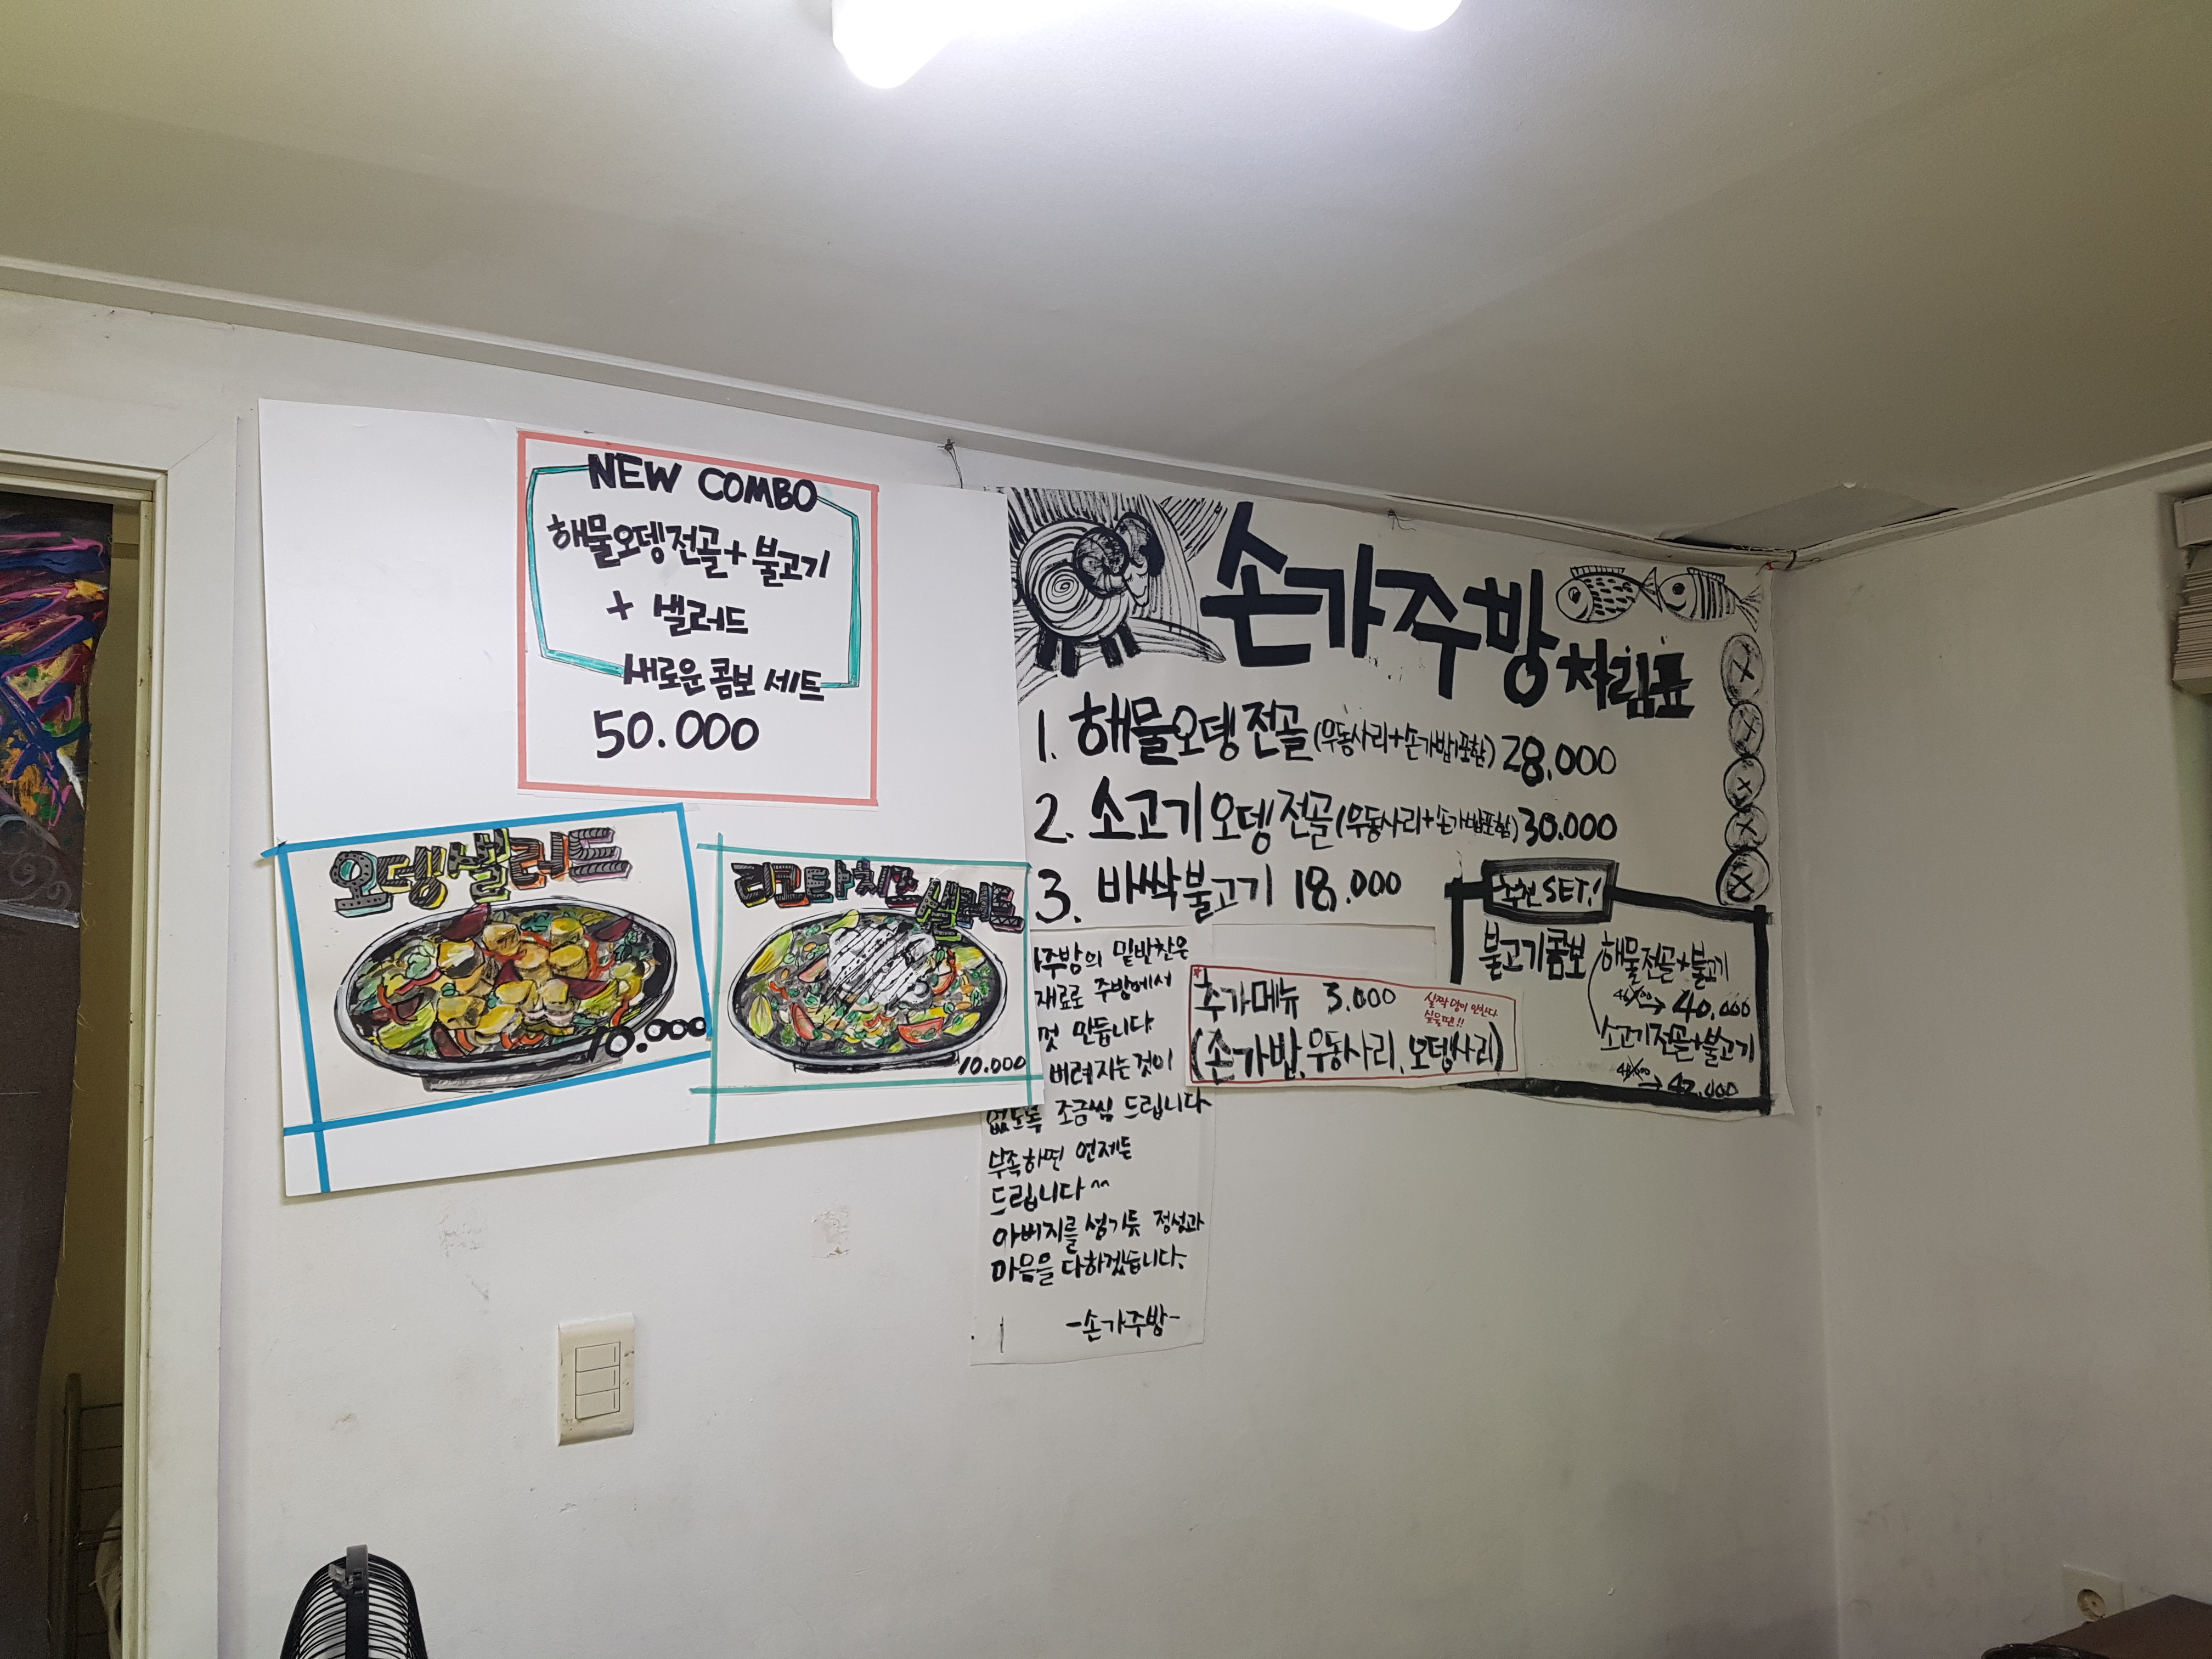 NEW COMBO
해물오뎅전골+불고기
+ 샐러드
새로운 콤보 세트
50.000
오뎅샐러드
10.000
리코타치즈샐러드
10.000
손가주방 차림표
1. 해물오뎅전골 (우동사리+손가밥포함) 28.000
2. 소고기오뎅전골 (우동사리+손가밥포함) 30.000
3. 바싹불고기 18.000
추천 SET!
불고기콤보
해물전골+불고기
→ 40.000
소고기전골+불고기
→ 42.000
추가메뉴 3.000
(손가밥, 우동사리, 오뎅사리)
주방의 밑반찬은
재료로 주방에서
껏 만듭니다
버려지는것이
없도록 조금씩 드립니다
부족하면 언제든
드립니다^^
아버지를 섬기듯 정성과
마음을 다하겠습니다.
-손가주방-